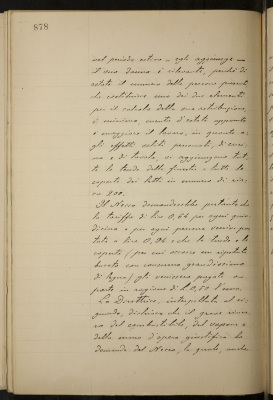 878
nel periodo estivo - egli aggiunge -
il suo danno è rilevante, perchè di
estate il numero delle persone presenti
che costituisce uno dei due elementi
per il calcolo della sua retribuzione,
è minimo, mentre d'estate appunto
è maggiore il lavoro, in quanto a
gli effetti soliti personali, di cuci
na e di tavola, si aggiungono tut
te le tende delle finestre e tutte le
coperte dei letti in numero di cir
ca 200.
Il Nosso domanderebbe pertanto che
la tariffa di lire 0,66 per ogni quin
dicina e per ogni persona venisse por
tata a lire 0,86 e che le tende e le
coperte (per cui occorre un ripetuto
bucato con consumo grandissimo
di legna) gli venissero pagate a
parte in ragione di L. 0,50 l'una.
La Direttrice, interpellata al ri
guardo, dichiara che il grave rinca
ro del combustibile, del sapone e
della mano d'opera giustifica la
domanda del Nosso, la quale, anche